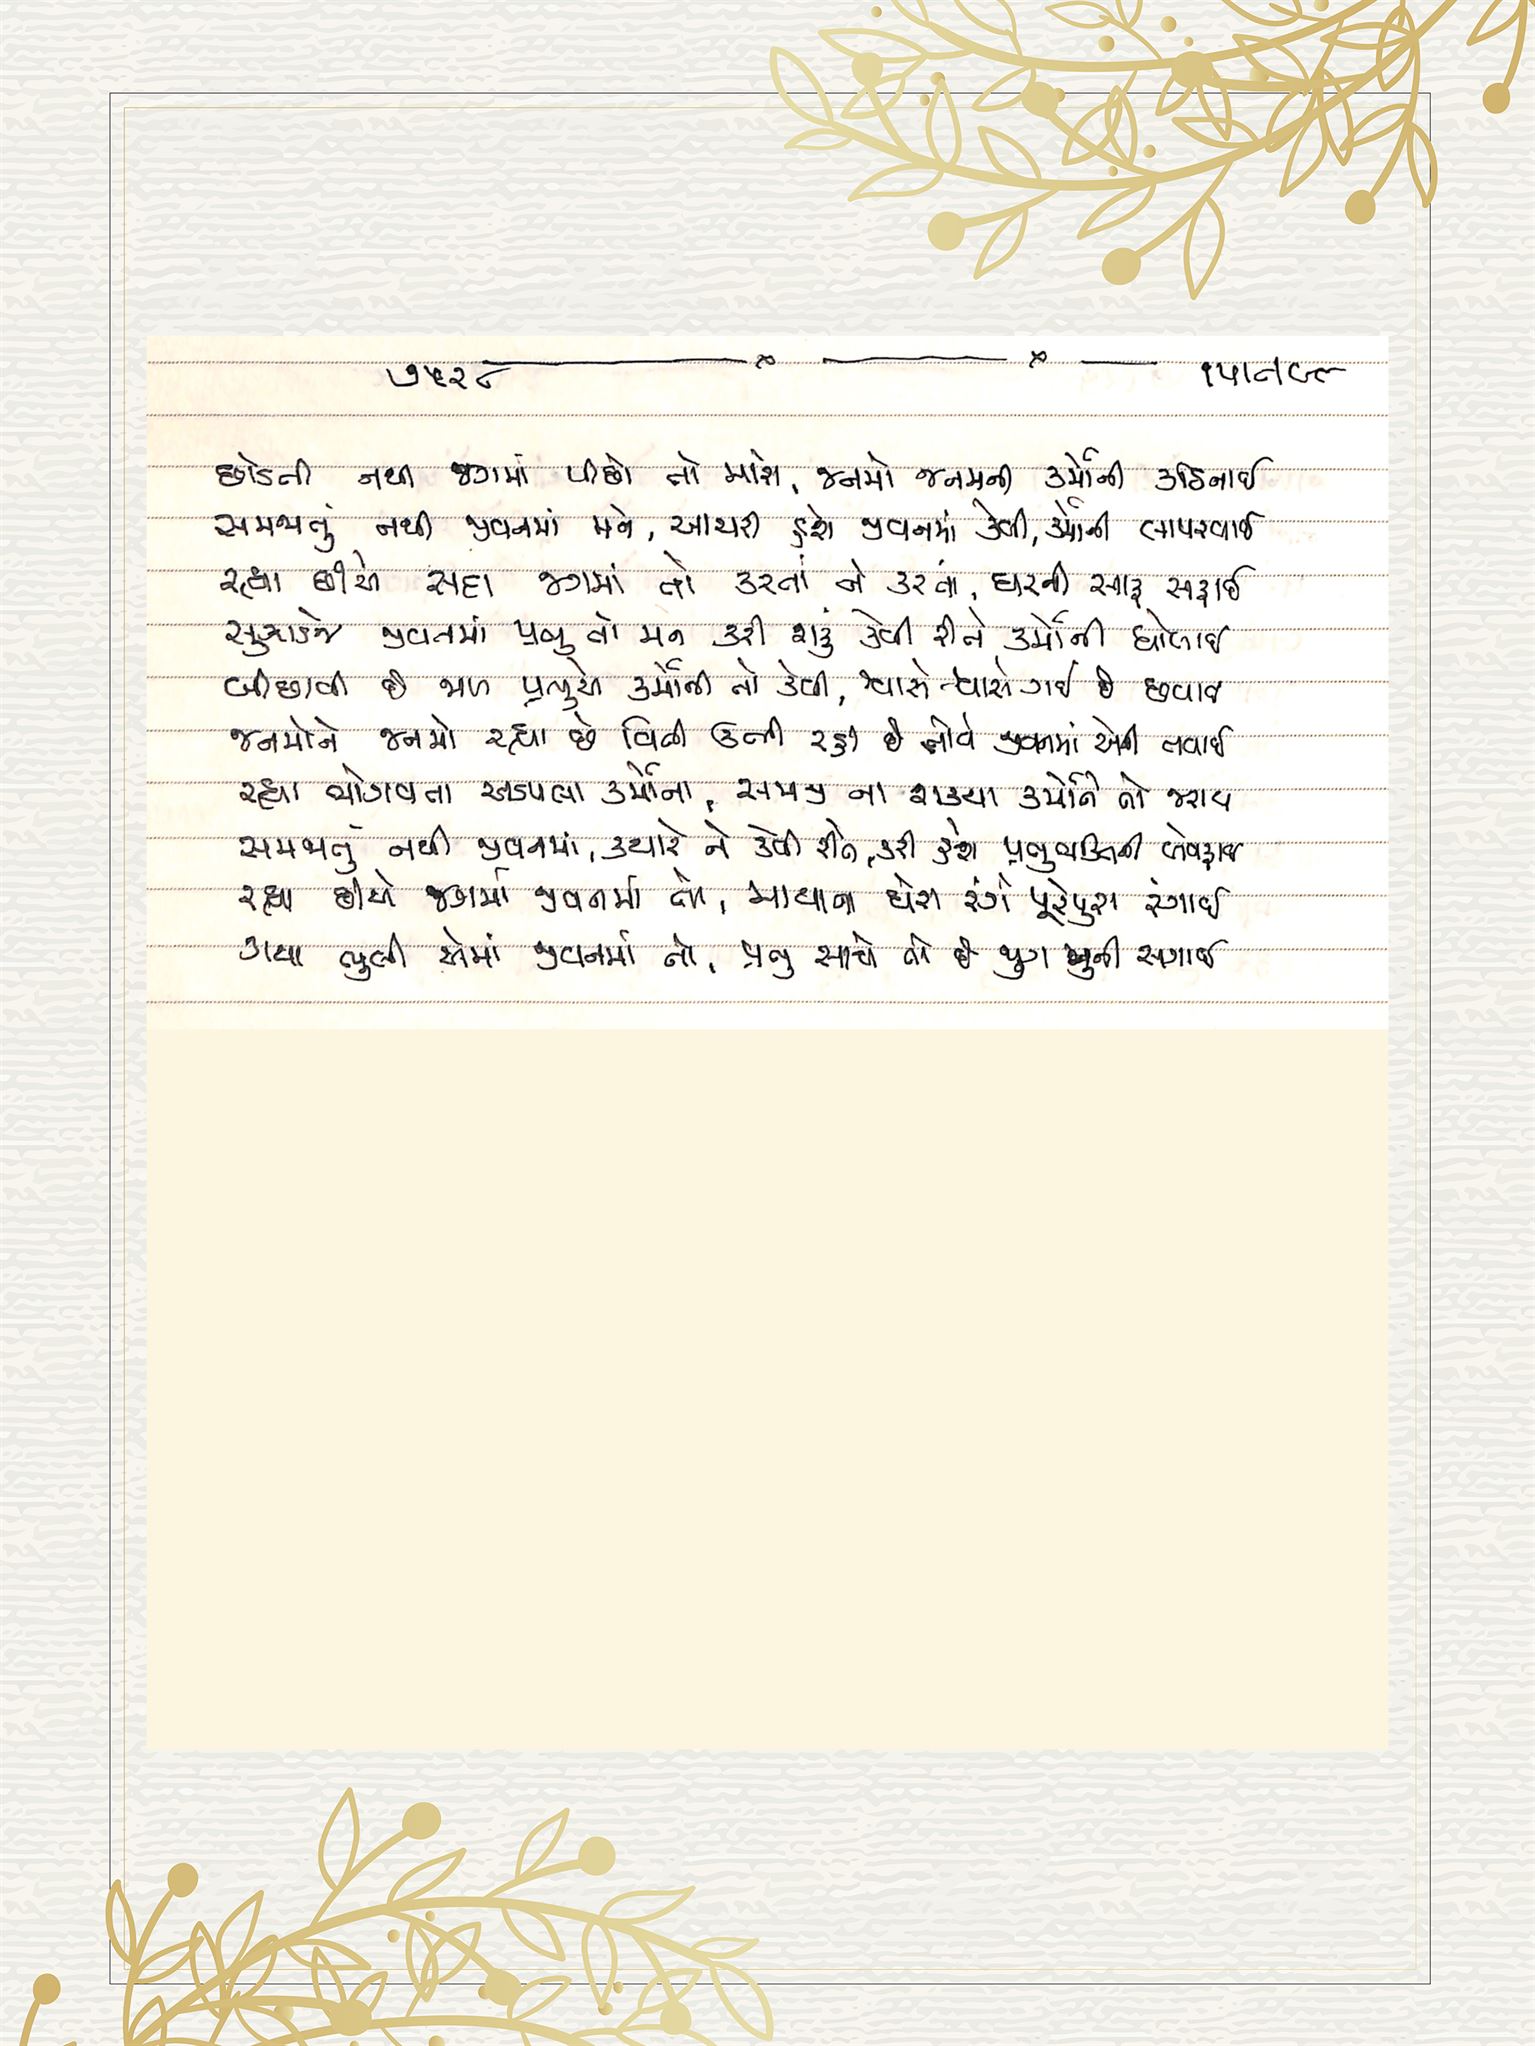 ૭૫૨૮ ૧૫।૧૮૯
છોડતી નથી જગમાં પીછો તો મારો, જનમો જનમની કર્મોની કઠિનાઈ
સમજાતું નથી જીવનમાં મને, આચરી હશે જીવનમાં કેવી, કર્મોની લાપરવાઈ
રહ્યા છીએ સદા જગમાં તો કરતાં ને કરતાં, ઘરની સાફ સફાઈ
સુઝાડજે જીવનમાં પ્રભુ તો મને કરી શકું કેવી રીતે કર્મોની ધોલાઈ
બીછાવી છે જાળ પ્રભુએ કર્મોની તો કેવી, શ્વાસે શ્વાસે ગઈ છે છવાઈ
જનમોને જનમો રહ્યા છે વિતી ઉભી રહી છે જીવનમાં એની તવાઈ
રહ્યા ભોગવતા સપાટા કર્મોના, સમજી ના શક્યા કર્મોને તો જરાય
સમજાતું નથી જીવનમાં, ક્યારે ને કેવી રીતે, કરી હશે પ્રભુભક્તિની બેવફાઈ
રહ્યા છીએ જગમાં જીવનમાં તો, માયાના ઘેરા રંગે પૂરેપુરા રંગાઈ
ગયા ભુલી એમાં જીવનમાં તો, પ્રભુ સાથે તો છે યુગ જુની સગાઈ